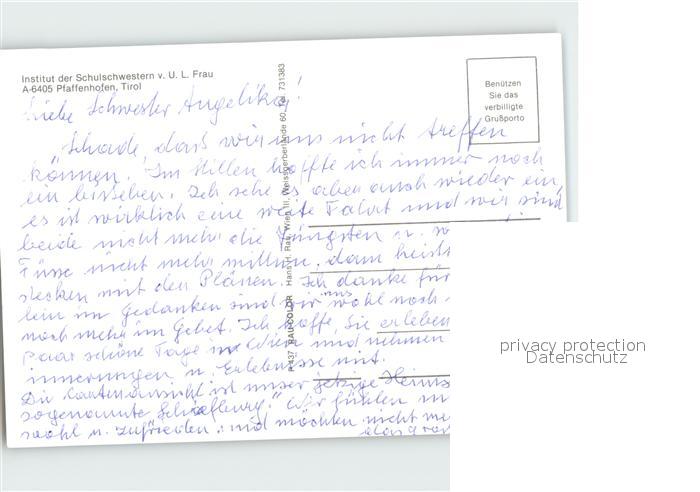 Institut der Schulschwestern v. U. L. Frau
A-6405 Pfaffenhofen, Tirol
Benützen
Sie das
verbilligte
Grußporto
Liebe Schwester Angelika!
Schade, daß wir uns nicht treffen
können. Im Stillen hoffte ich immer noch
ein bisschen. Ich sehe es aber auch wieder ein,
es ist wirklich eine weite Fahrt und wir sind
beide nicht mehr die Jüngsten u. w
Füsse nicht mehr mittun, dann heisst
stecken mit den Plänen. Ich danke für
lein im Gedanken sind wir uns wohl noch
noch mehr im Gebet. Ich hoffe, Sie erleben
Paar schöne Tage in Wien und nehmen
innerungen u. Erlebnisse mit.
Die Kartenansicht ist unser jetzige Heims
sogenannte Schloßburg." Wir fühlen un
wohl u. zufrieden und möchten nicht me
P 437 RAU-COLOR Hans H. Rau, Wien III, Weissgerberlände 60, Tel. 731383
privacy protection
Datenschutz